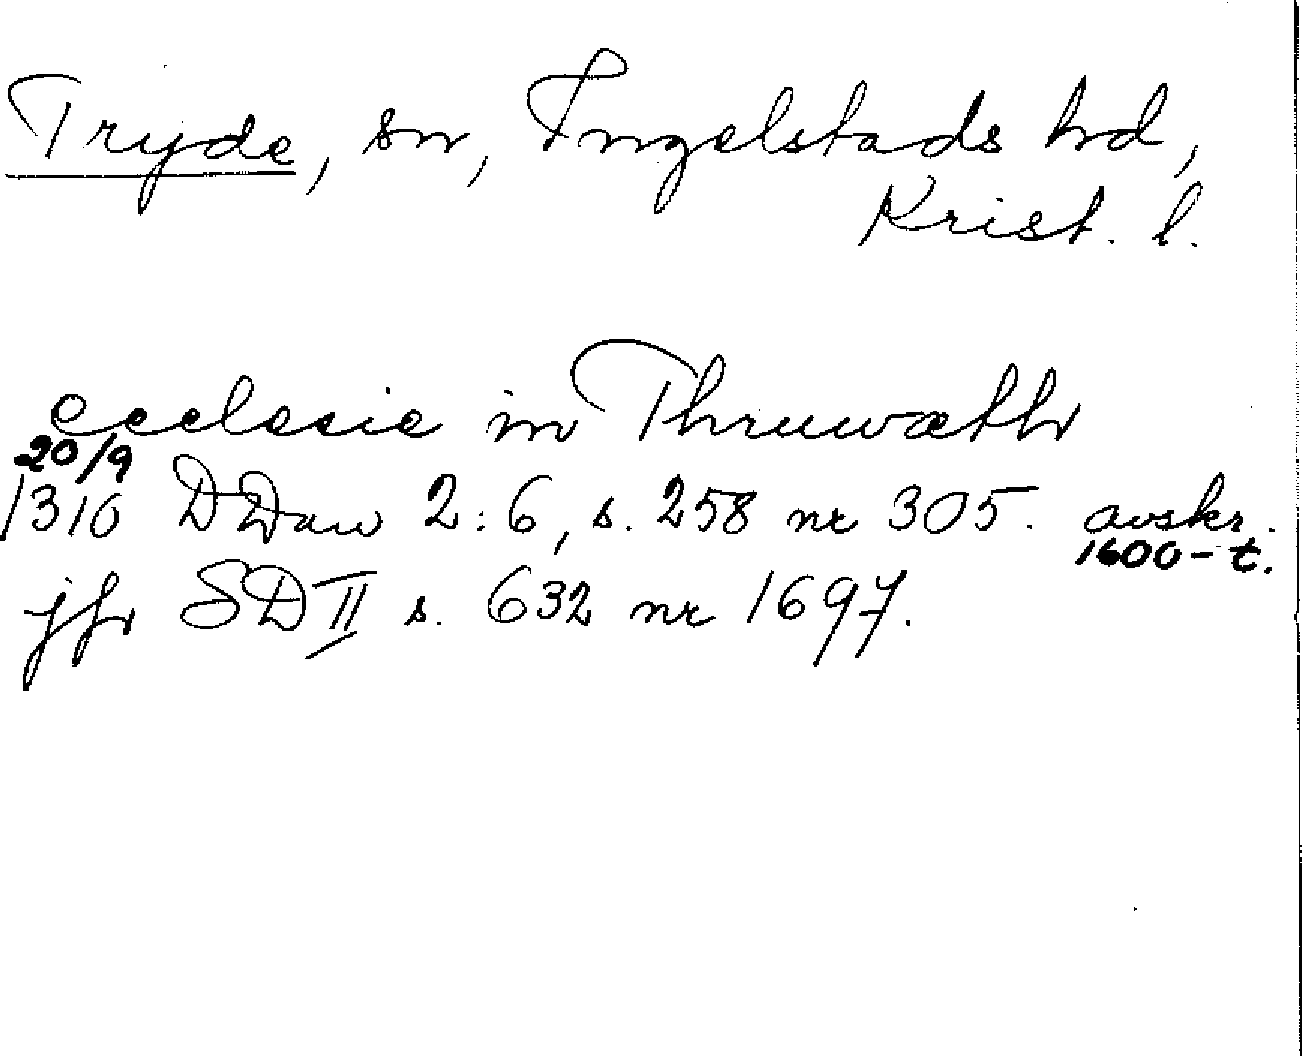 Tryde, sn, Ingelstads hd,
Krist. l.
ecclesie in Thruwæth
20/9
1310 DDan 2:6, s. 258 nr 305. avskr.
1600-t.
jfr SD II s. 632 nr 1697.